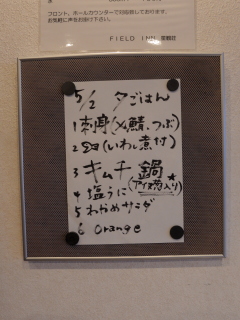 フロント、ホールカウンターで対応致しております。
お気軽に声をお掛け下さい。
FIELD INN
5/2 夕ごはん
1 刺身(〆鯖、つぶ)
2 皿(いわし煮付)
3 キムチ鍋
(アイヌ葱入り)
4 塩うに
5 わかめサラダ
6 Orange